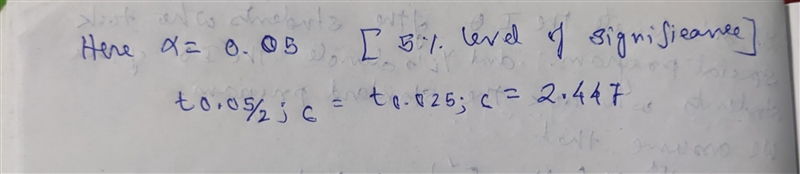 Here α = 0.05 [ 5% level of significance]
t0.05/2; 6 = t0.025; 6 = 2.447